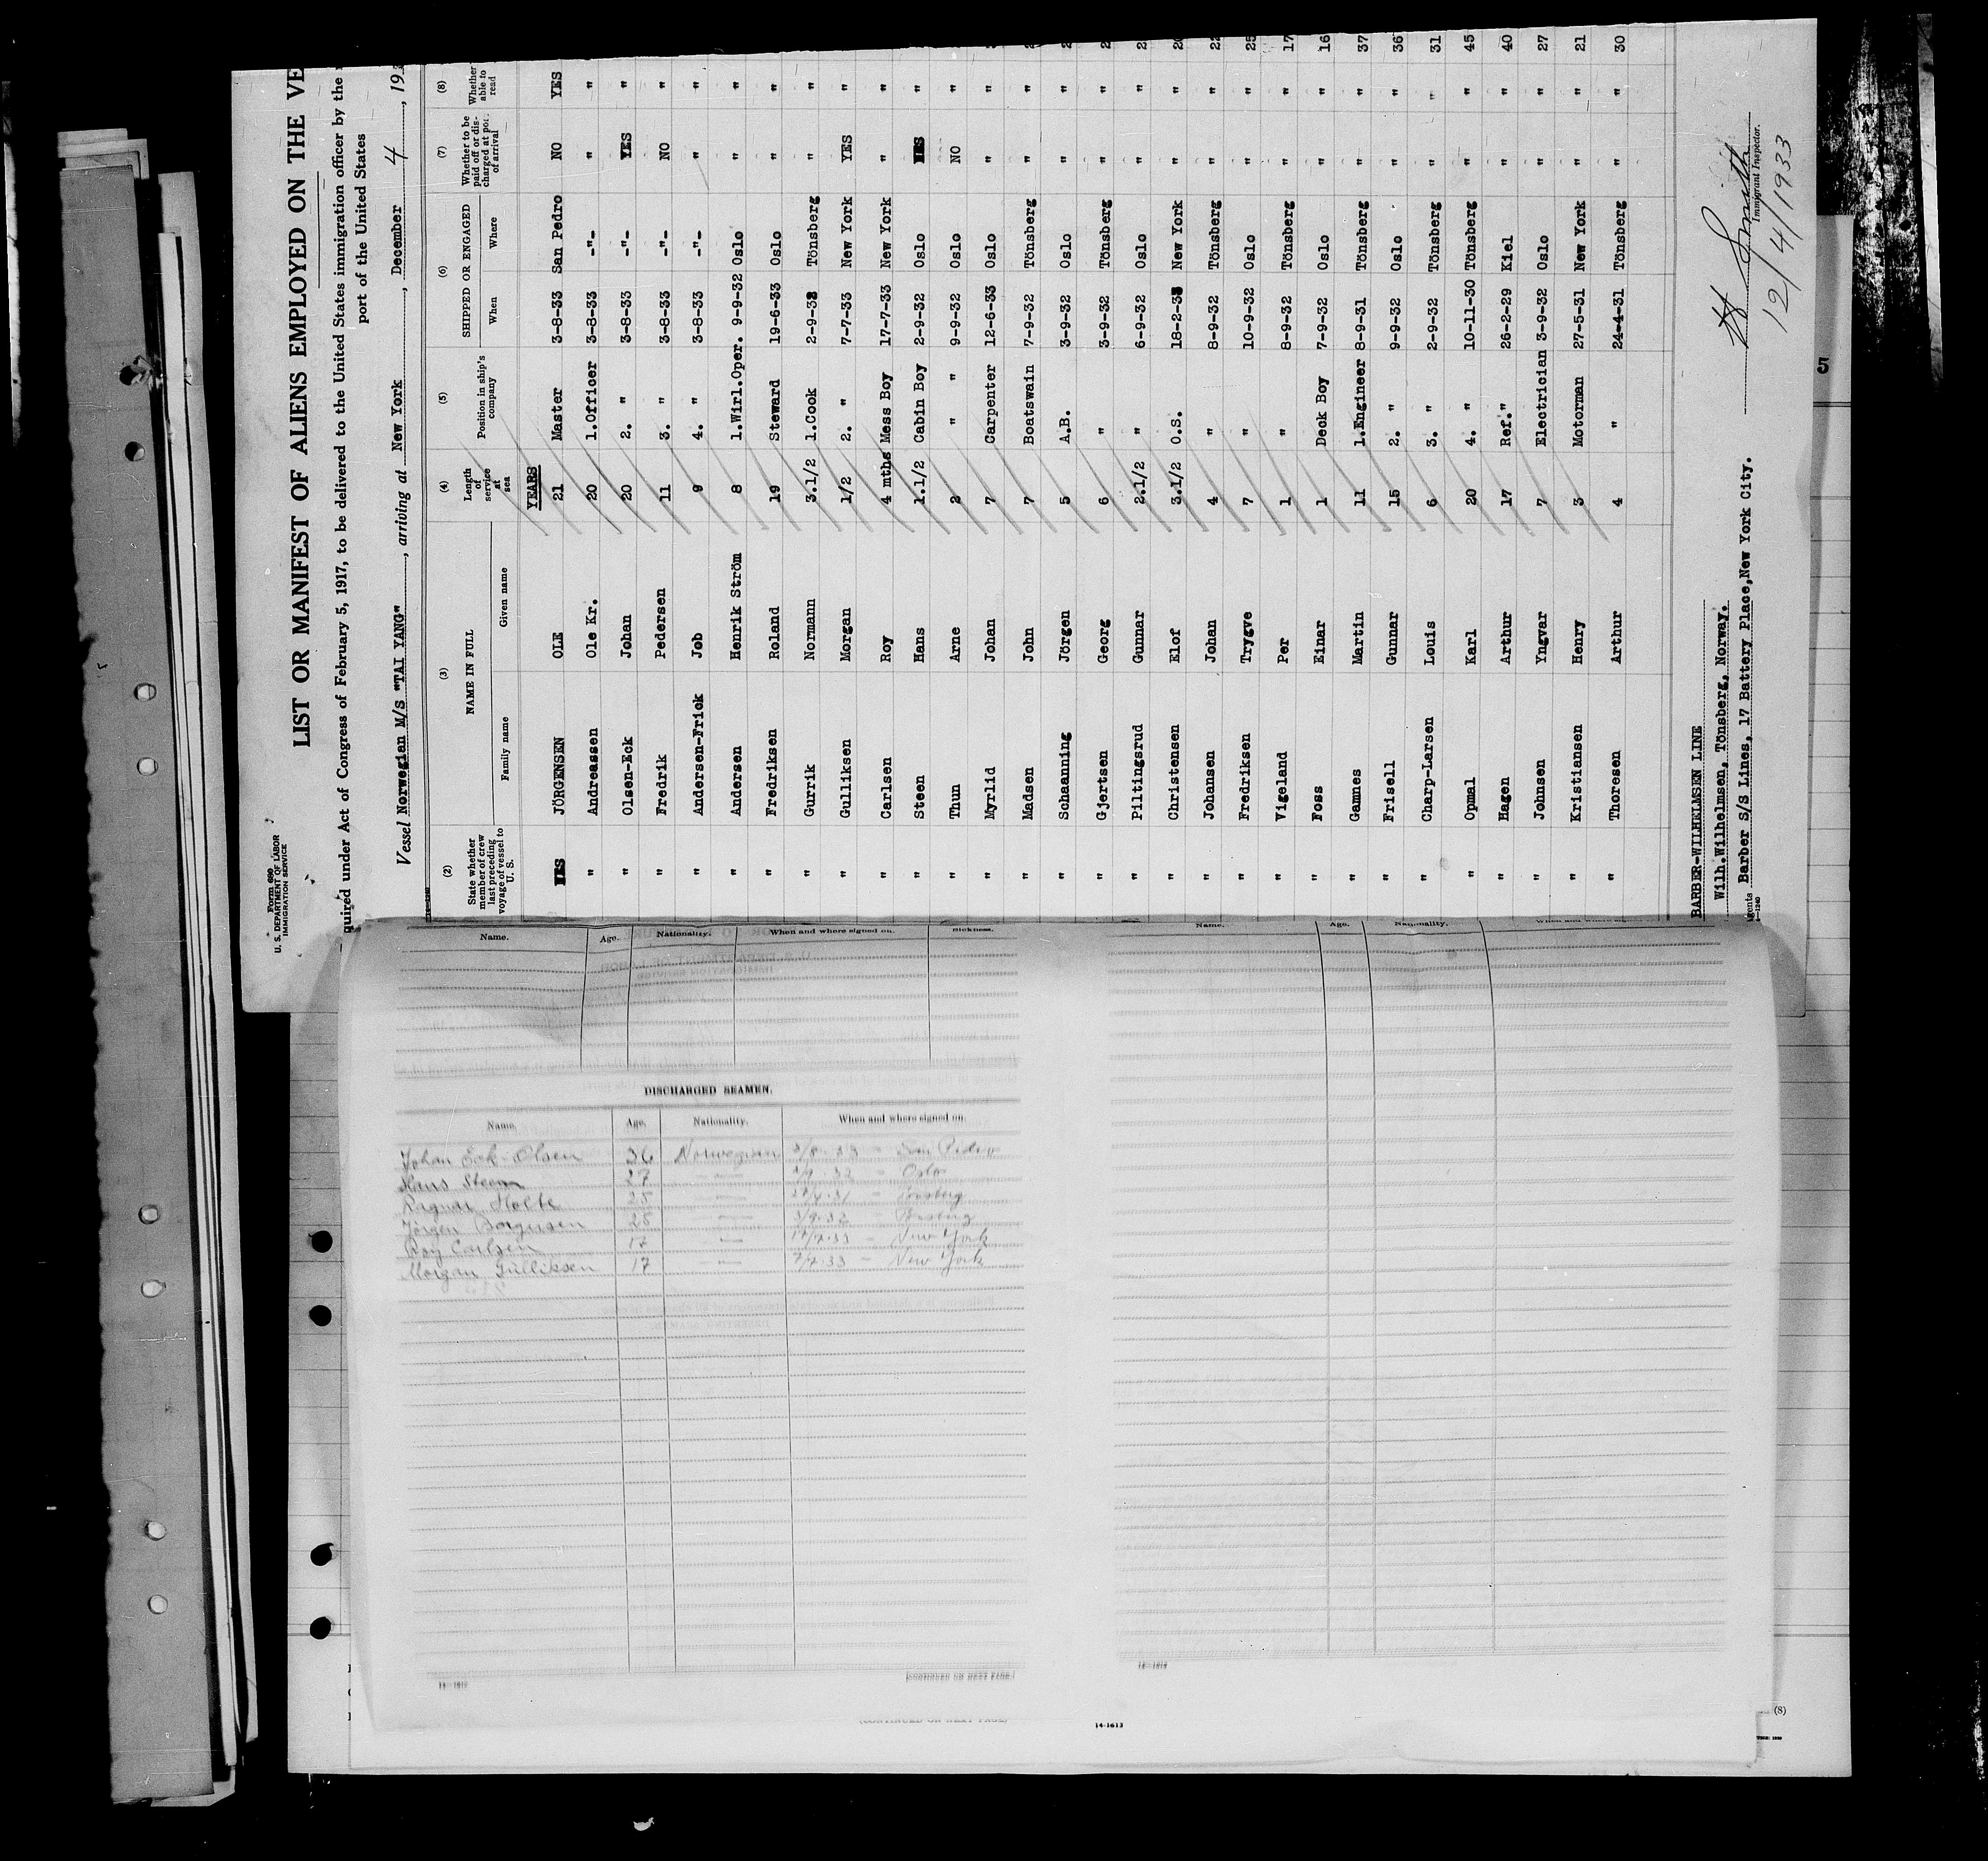 Form 690
U. S. DEPARTMENT OF LABOR
IMMIGRATION SERVICE
LIST OR MANIFEST OF ALIENS EMPLOYED ON THE VE
quired under Act of Congress of February 5, 1917, to be delivered to the United States immigration officer by the
port of the United States
Vessel Norwegian M/S "TAI YANG", arriving at New York, December 4, 193
(2) (3) (4) (5) (6) (7) (8)
State whether member of crew last preceding voyage of vessel to U. S. NAME IN FULL Family name Given name Length of service at sea Position in ship's company SHIPPED OR ENGAGED When Where Whether to be paid off or discharged at port of arrival Whether able to read
YEARS
YES JÖRGENSEN OLE 21 Master 3-8-33 San Pedro NO YES
" Andreassen Ole Kr. 20 1.Officer 3-8-33 -"- " "
" Olsen-Eck Johan 20 2. " 3-8-33 -"- YES "
" Fredrik Pedersen 11 3. " 3-8-33 -"- NO "
" Andersen-Frick Job 9 4. " 3-8-33 -"- " "
" Andersen Henrik Ström 8 1.Wirl.Oper. 9-9-32 Oslo " "
" Fredriksen Roland 19 Steward 19-6-33 Oslo " "
" Gurrik Normann 3.1/2 1.Cook 2-9-32 Tönsberg " "
" Gulliksen Morgan 1/2 2. " 7-7-33 New York YES "
" Carlsen Roy 4 mths Mess Boy 17-7-33 New York " "
" Steen Hans 1.1/2 Cabin Boy 2-9-32 Oslo YES "
" Thun Arne 2 " " 9-9-32 Oslo NO "
" Myrlid Johan 7 Carpenter 12-6-33 Oslo " "
" Madsen John 7 Boatswain 7-9-32 Tönsberg " "
" Schaanning Jörgen 5 A.B. 3-9-32 Oslo " "
" Gjertsen Georg 6 " 3-9-32 Tönsberg " "
" Piltingsrud Gunnar 2.1/2 " 6-9-32 Oslo " "
" Christensen Elof 3.1/2 O.S. 18-2-33 New York " " 20
" Johansen Johan 4 " 8-9-32 Tönsberg " " 22
" Fredriksen Trygve 7 " 10-9-32 Oslo " " 25
" Vigeland Per 1 " 8-9-32 Tönsberg " " 17
" Foss Einar 1 Deck Boy 7-9-32 Oslo " " 16
" Gamnes Martin 11 1.Engineer 8-9-31 Tönsberg " " 37
" Frisell Gunnar 15 2. " 9-9-32 Oslo " " 36
" Charp-Larsen Louis 6 3. " 2-9-32 Tönsberg " " 31
" Opmal Karl 20 4. " 10-11-30 Tönsberg " " 45
" Hagen Arthur 17 Ref." 26-2-29 Kiel " " 40
" Johnsen Yngvar 7 Electrician 3-9-32 Oslo " " 27
" Kristiansen Henry 3 Motorman 27-5-31 New York " " 21
" Thoresen Arthur 4 " 24-4-31 Tönsberg " " 30
BARBER-WILHELMSEN LINE
Wilh.Wilhelmsen, Tönsberg, Norway.
gents Barber S/S Lines, 17 Battery Place,New York City.
Smith
Immigrant Inspector.
12/4/1933
5
Name. Age. Nationality. When and where signed on. sickness.
Name. Age. Nationality.
DISCHARGED SEAMEN.
Name. Age. Nationality. When and where signed on.
Johan Eck-Olsen 36 Norwegian 3/8-33 - San Pedro
Hans Steen 27 - " - 2/9-32 - Oslo
Ragnar Holte 25 - " -
Jörgen 25 - " - 3/9-32
Roy Carlsen 17 - " - 17/7-33 - New York
Morgan Gulliksen 17 - " - 7/7-33 - New York
(CONTINUED ON NEXT PAGE)
14-1613
(8)